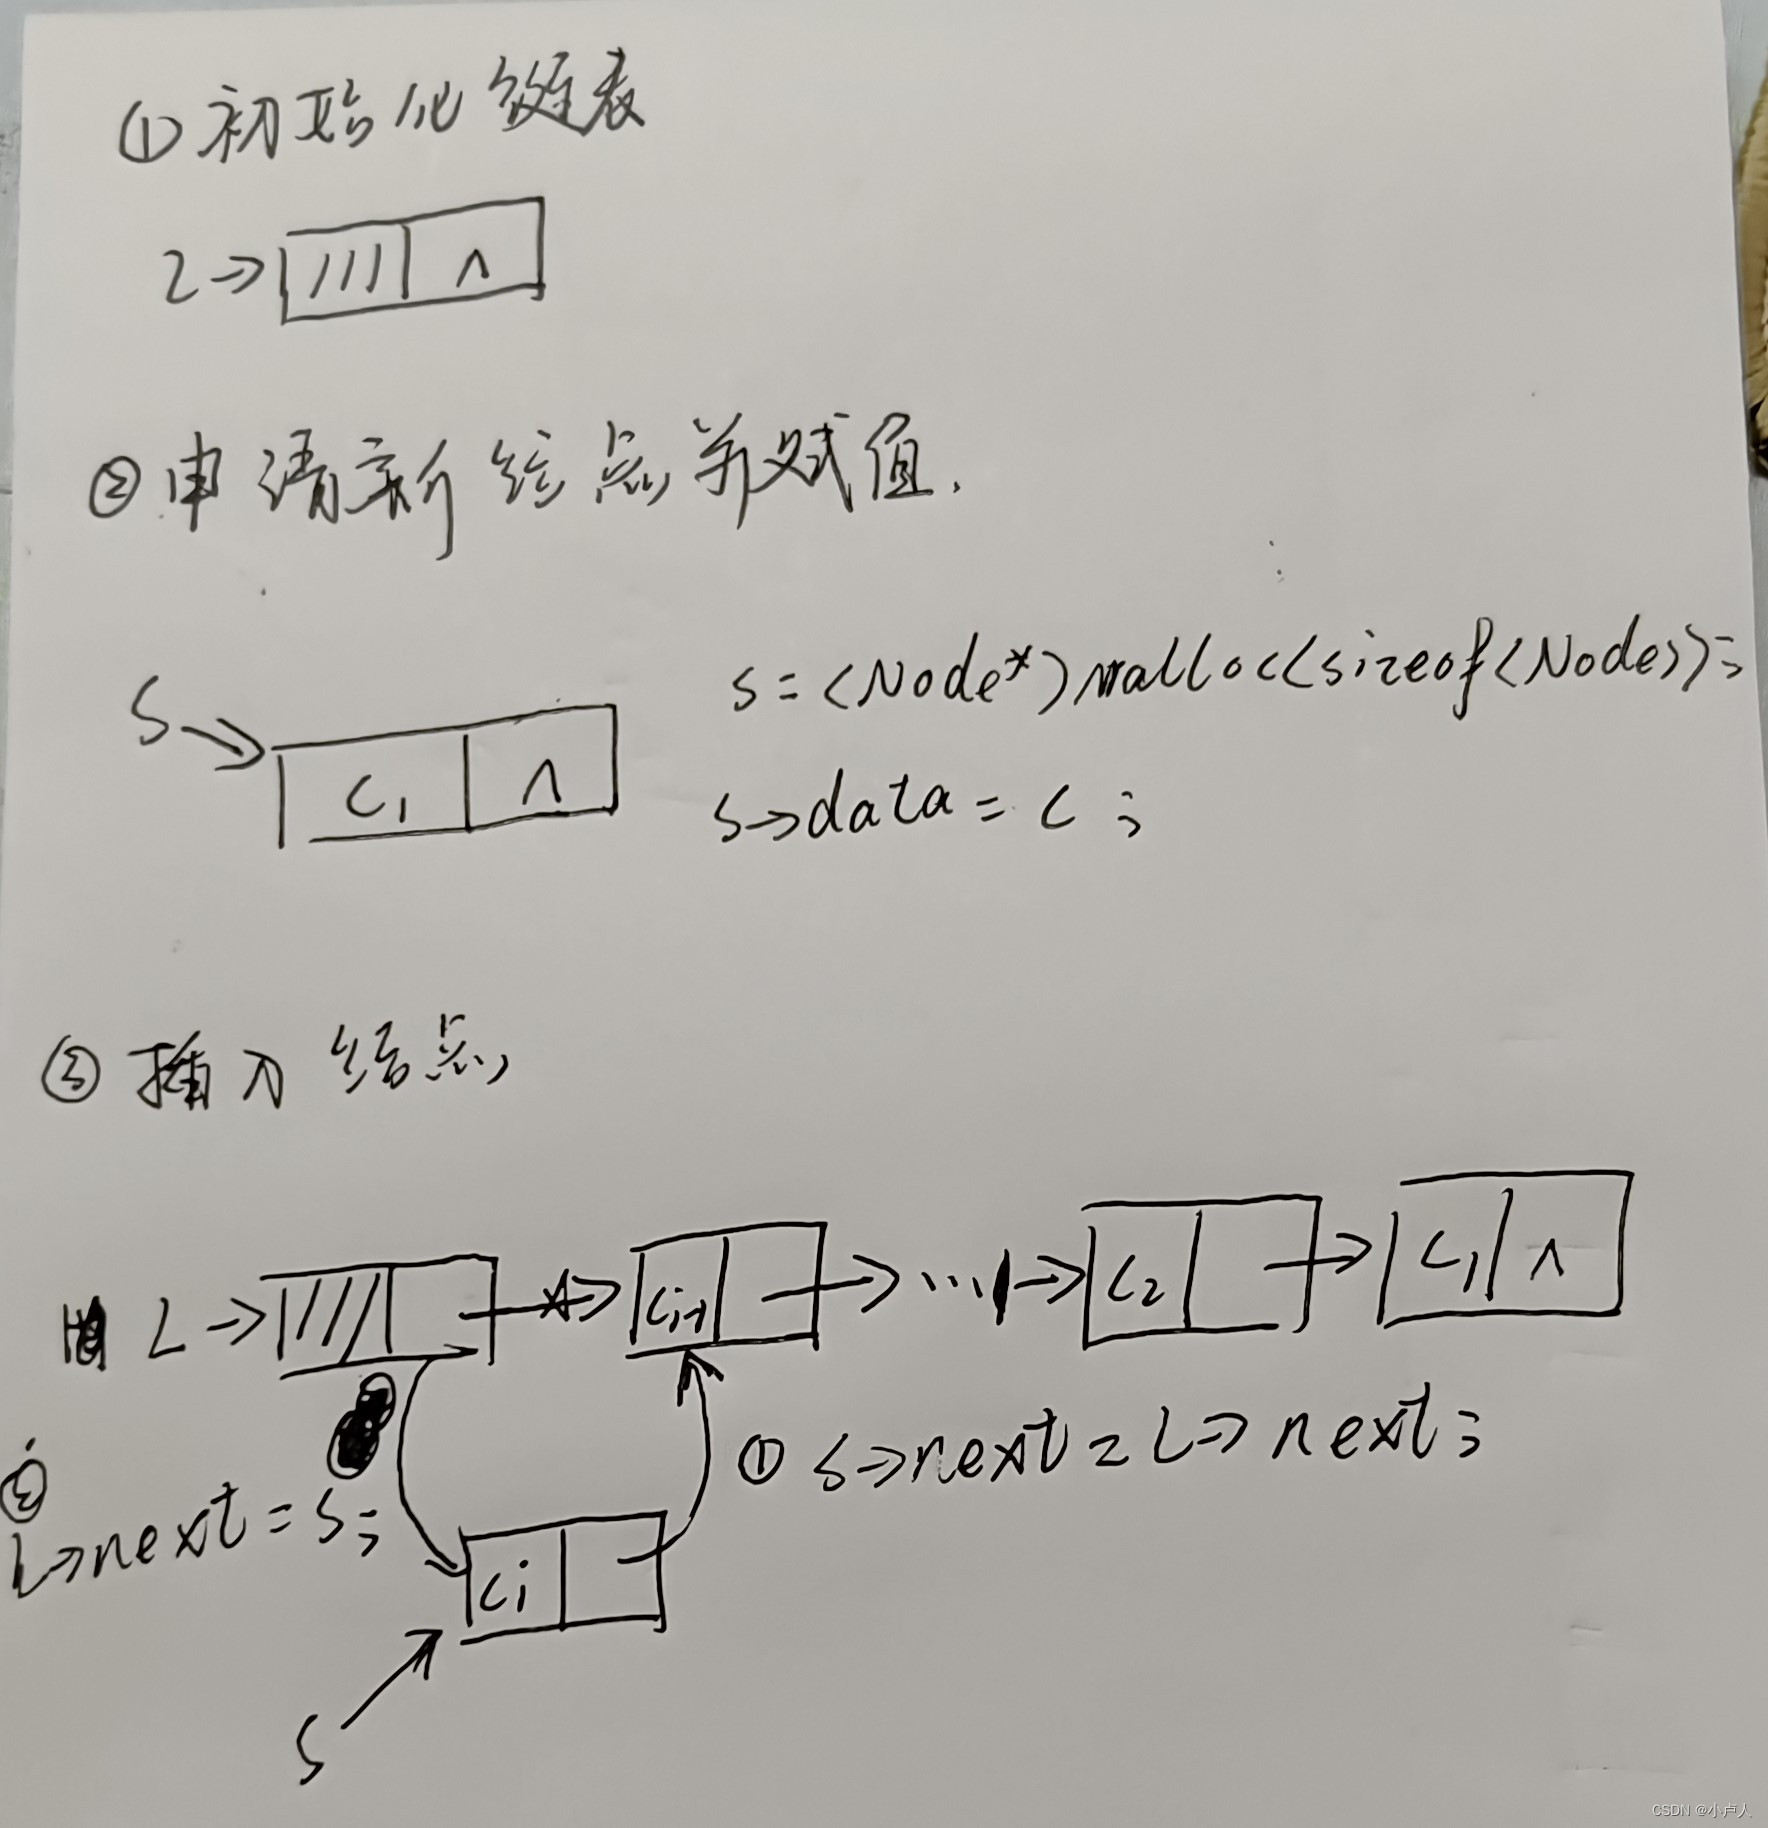 ①初始化链表
L→ ∧
②申请新结点并赋值.
S
s=(Node*)malloc(sizeof(Node));
C₁ ∧
s→data=c;
③插入结点
L→ Cᵢ₋₁ → ... → C₂ → C₁ ∧
① s→next=L→next;
②
L→next=s;
Cᵢ
S
CSDN @小卢人